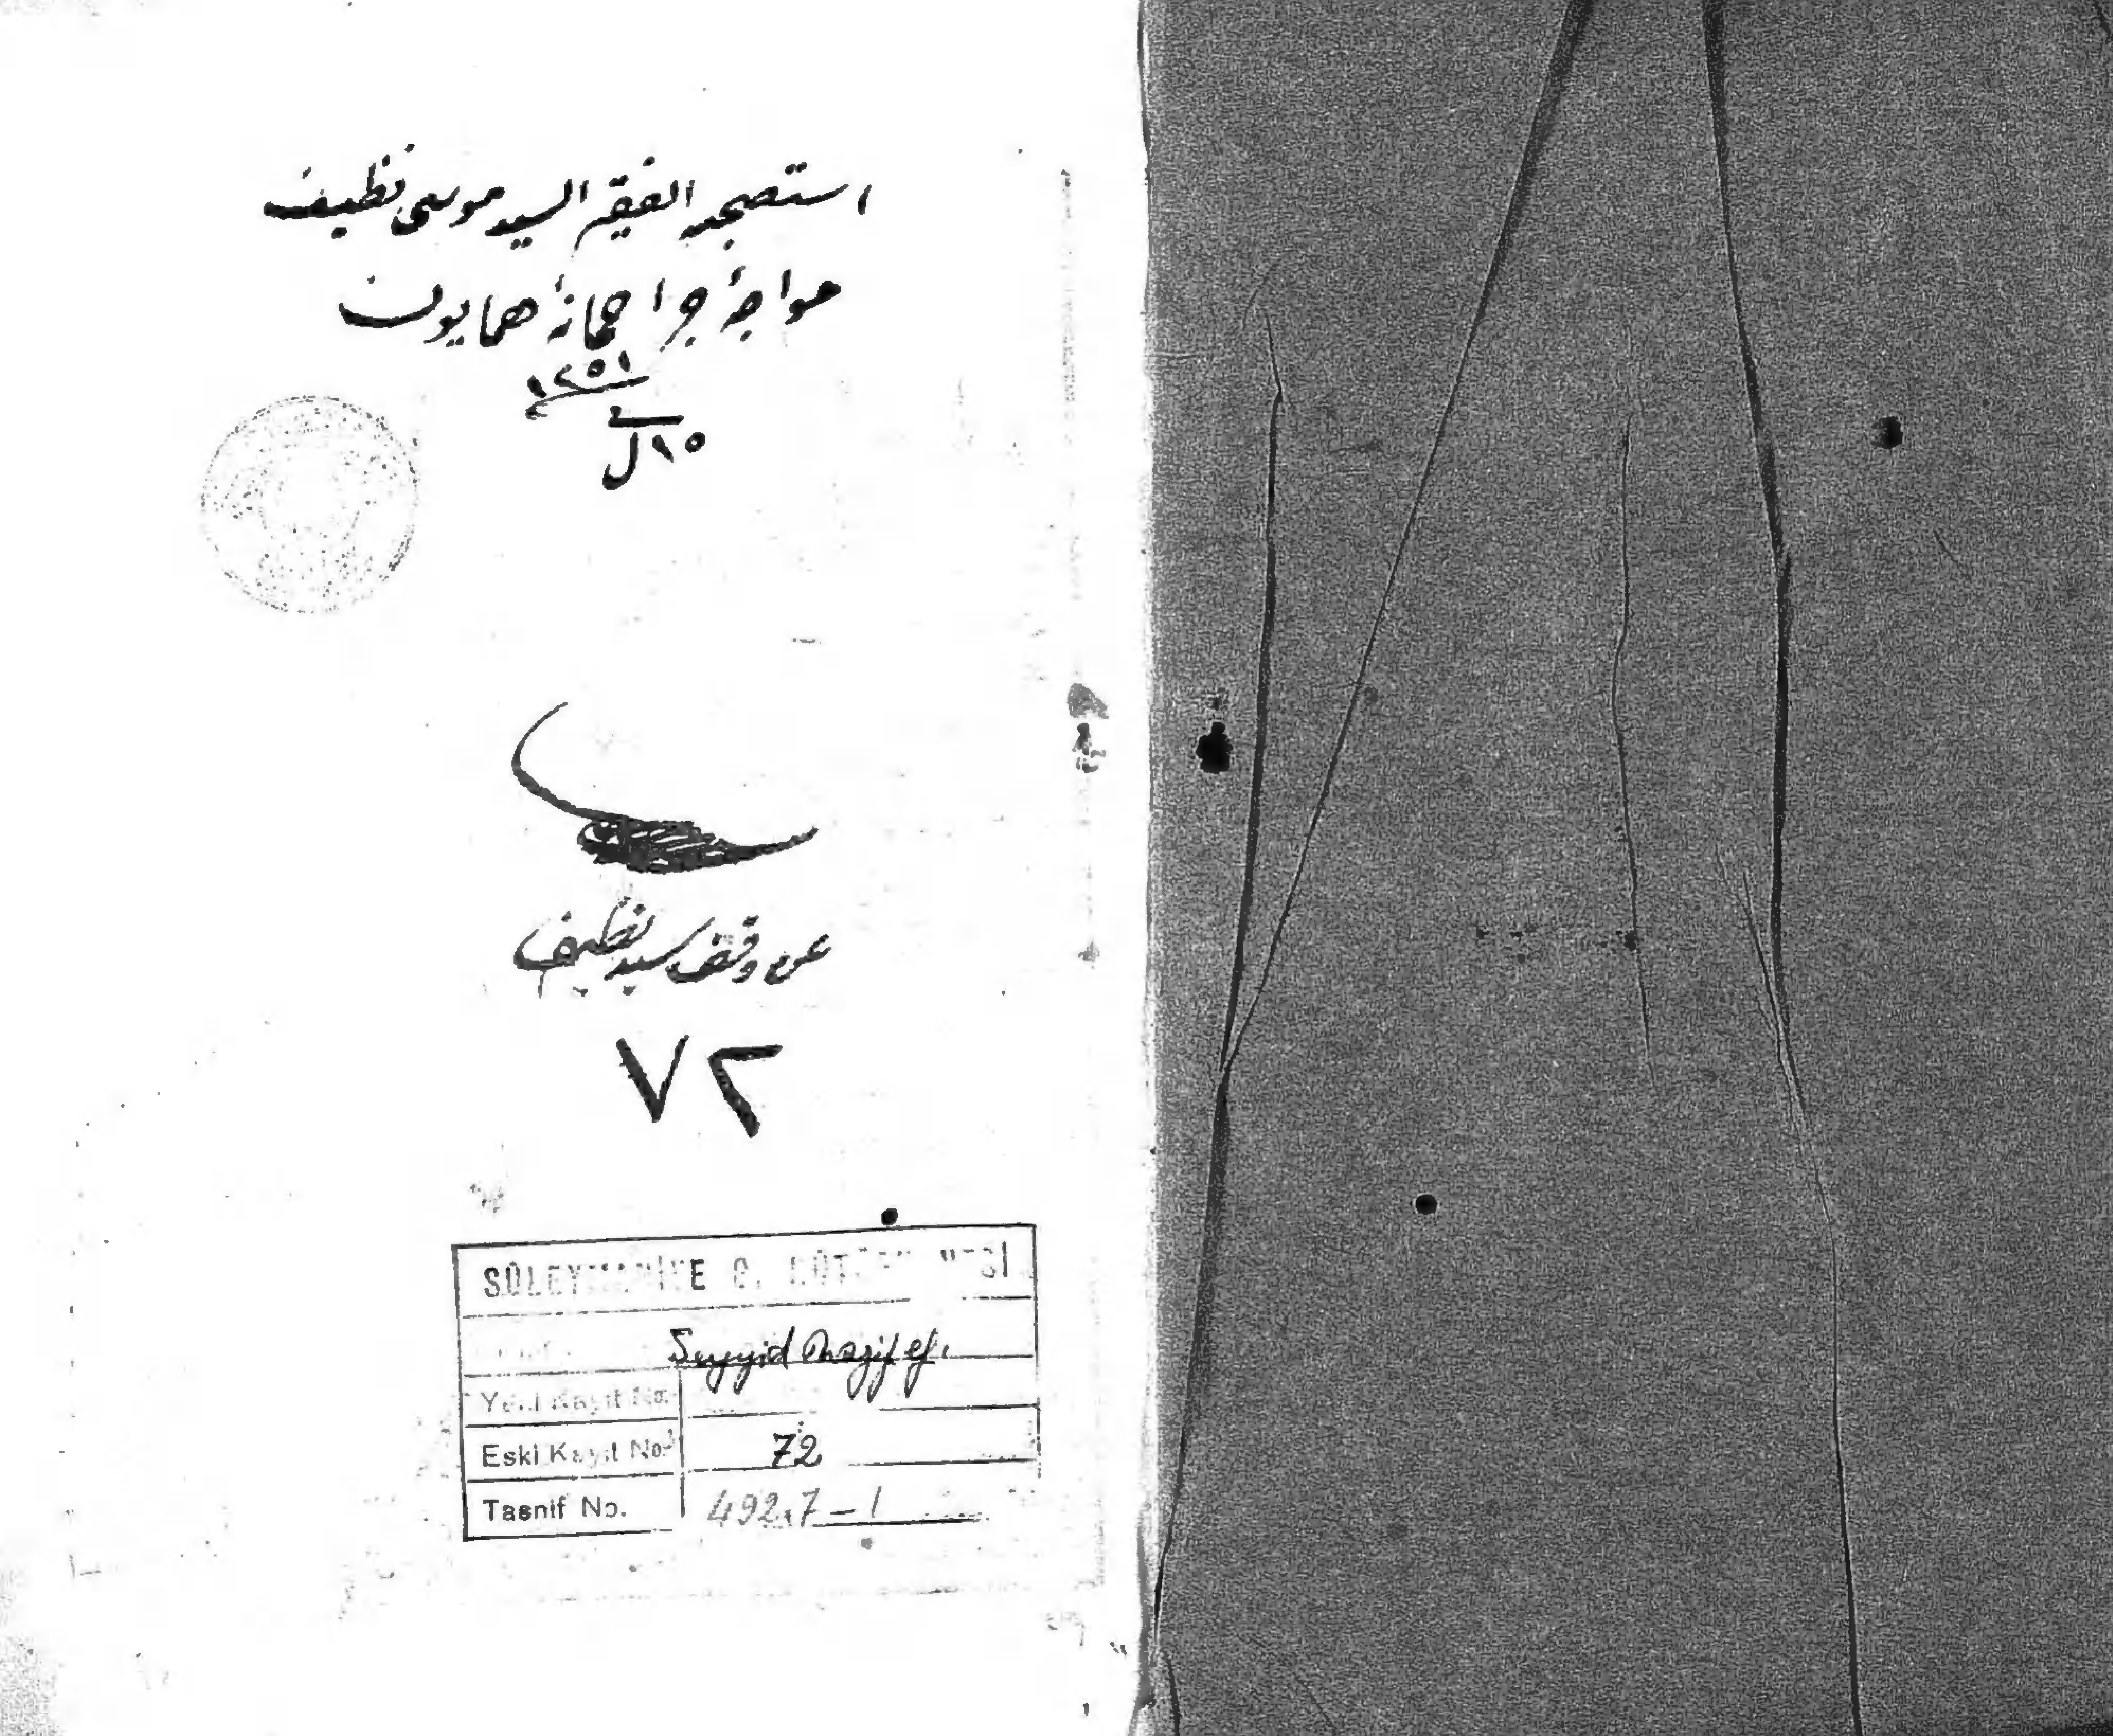 استصحبه الفقير السيد موسى نظيف
خواجهٔ جراحخانهٔ همايون
١٢٥١
١٥ ل
عن وقف سيد نظيف
٧٢
SÜLEYMANİYE G. KÜTÜPHANESİ
Seyyid Nazif ef.
Yeni Kayıt No.
Eski Kayıt No. 72
Tasnif No. 492.7-1